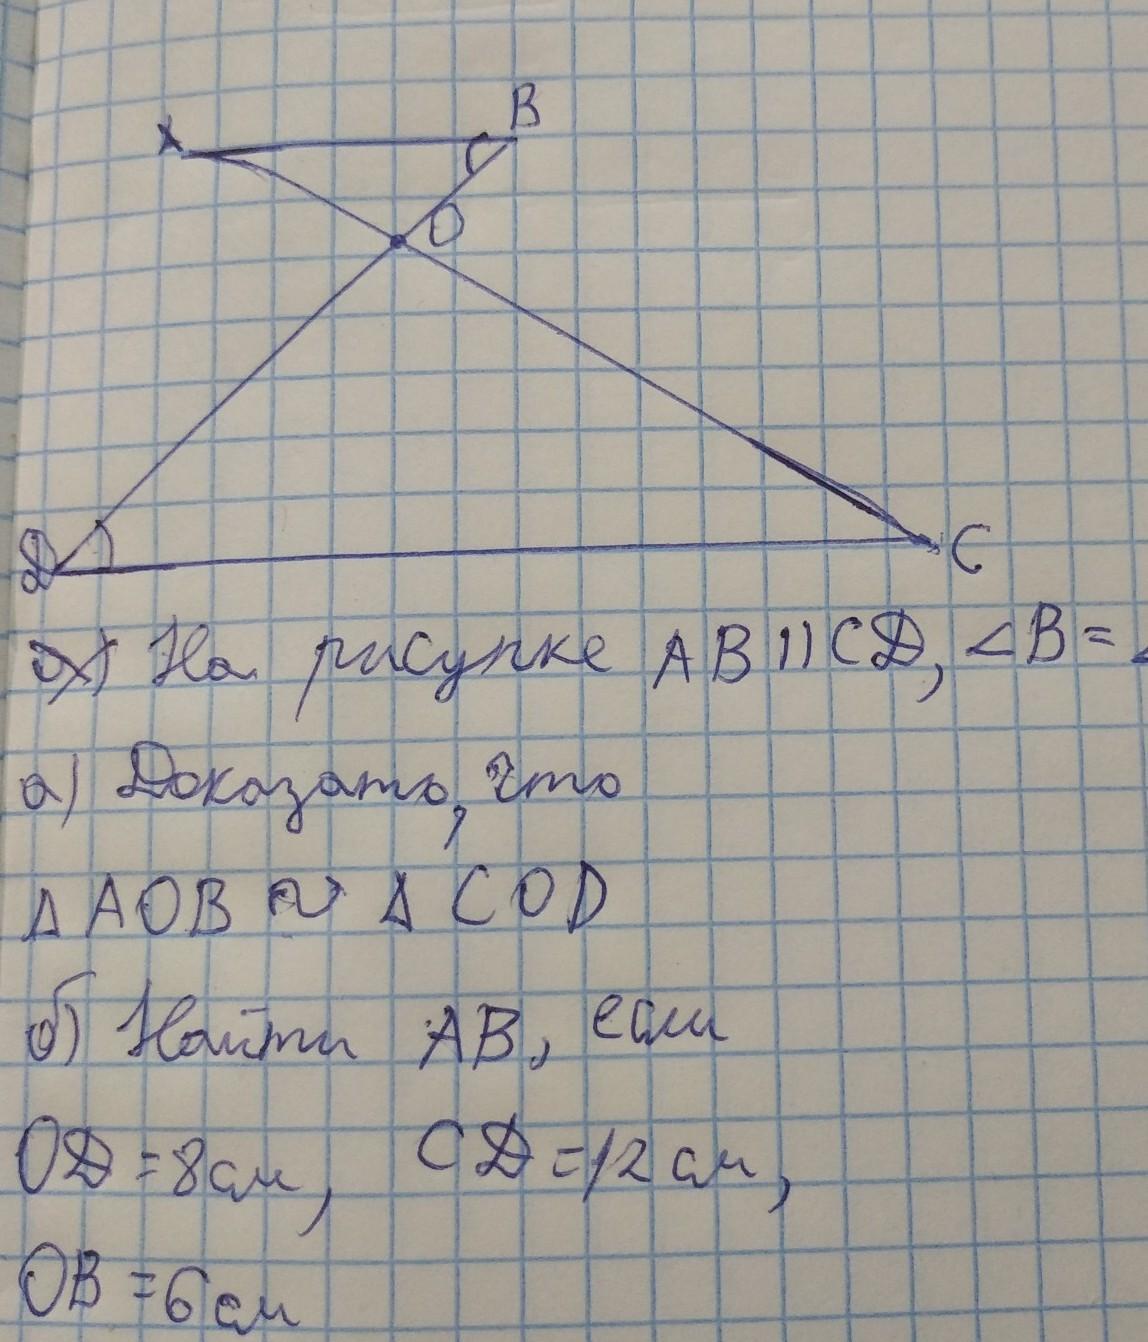 A
B
O
D
C
На рисунке AB || CD, ∠B = ∠
а) Доказать, что
Δ AOB ∾ Δ COD
б) Найти AB, если
OD = 8 см, CD = 12 см,
OB = 6 см